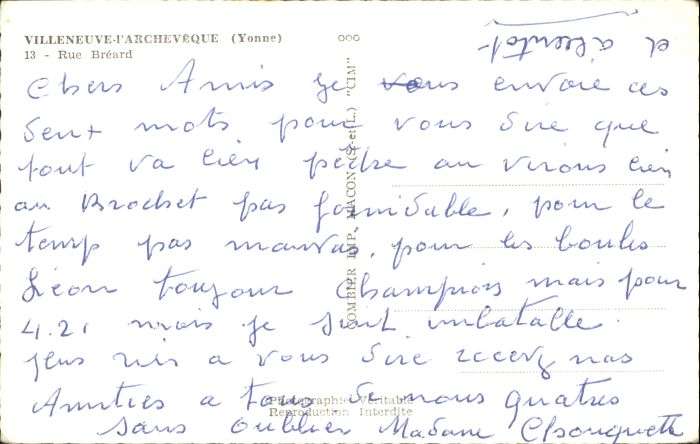 VILLENEUVE-l'ARCHEVÊQUE (Yonne)
13 - Rue Bréard
Chers Amis je vous envoie ces
deux mots pour vous dire que
tout va bien pêche au virous bien
au Brochet pas formidable, pour le
temp pas mauvas, pour les boules
Léon toujour Champion mais pour
4.21 mois je suit imbatable
plus rien a vous dire recevez nos
Amities a tous de nous quatres
sans oublier Madame
et a bientot
COMBIER IMP. MACON (S.-et-L.) "CIM"
Photographie Véritable
Reproduction Interdite